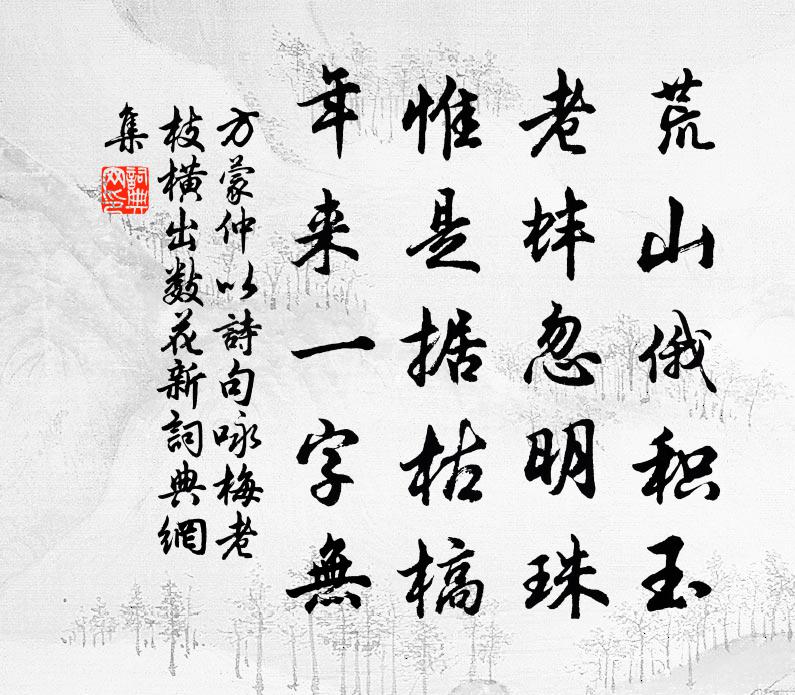 荒山俄积玉
老蚌忽明珠
惟是据枯槁
年来一字無
方蒙仲以詩句咏梅老
枝横出数花新詞典網
集
詞典網印